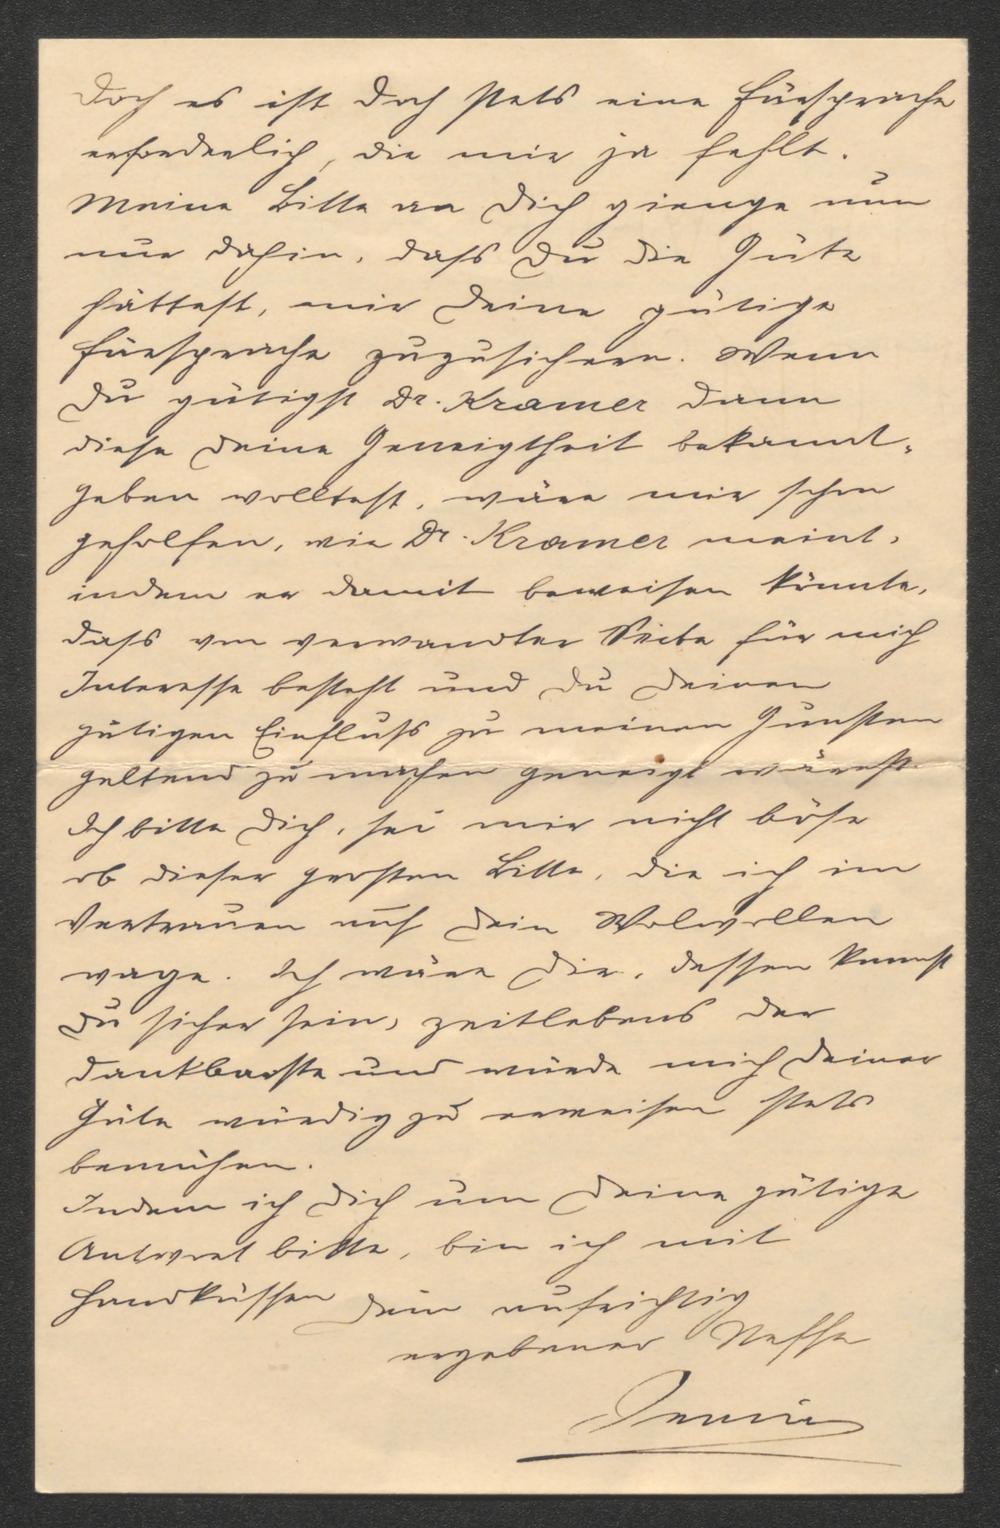 Doch es ist doch stets eine Fürsprache
erforderlich, die mir ja fehlt.
Meine Bitte an Dich gienge nun
nur dahin, dass Du die Güte
hättest, mir Deine gütige
Fürsprache zuzusichern. Wenn
Du gütigst Dr. Kramer dann
diese Deine Geneigtheit bekannt-
geben wolltest, wäre mir schon
geholfen, wie Dr. Kramer meint,
indem er damit beweisen könnte,
dass von verwandter Seite für mich
Interesse besteht und Du Deinen
gütigen Einfluss zu meinen Gunsten
geltend zu machen geneigt wärest.
Ich bitte Dich, sei mir nicht böse
ob dieser großen Bitte, die ich im
Vertrauen auf Dein Wolwollen
wage. Ich wäre Dir, dessen kannst
Du sicher sein, zeitlebens der
dankbarste und würde mich Deiner
Güte würdig zu erweisen stets
bemühen.
Indem ich Dich um Deine gütige
Antwort bitte, bin ich mit
Handküssen Dein aufrichtig
ergebener Neffe